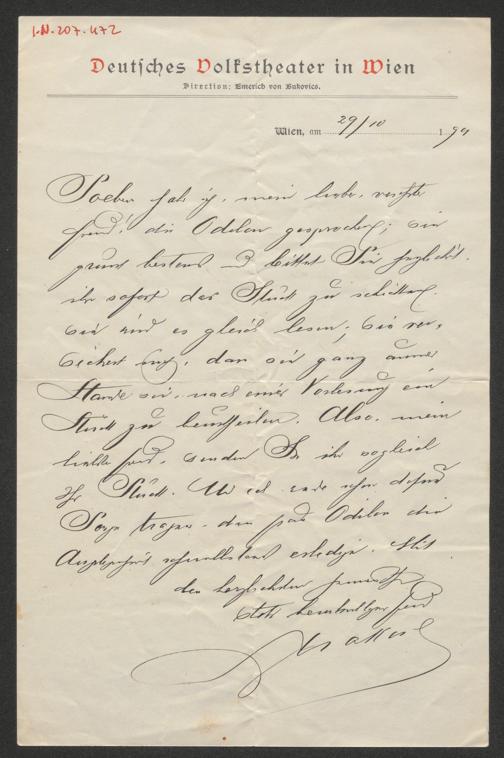 I.N. 207.472
Deutsches Volkstheater in Wien
Direction: Emerich von Bukovics.
Wien, am 29/10 1 94
Soeben hab ich, mein lieber, verehrter
Freund, die Odilon gesprochen; sie
grüßt bestens und bittet Sie
ihr sofort das Stück zu schicken.
Sie wird es gleich lesen; sie ver-
sichert mich, dass sie ganz außer
Stande sei, nach einer Vorlesung ein
Stück zu beurtheilen. Also, mein
liebster Freund, senden Sie ihr sogleich
Ihr Stück. Und ich werde schon dafür
Sorge tragen, dass Odilon die
Angelegenheit schnellstens erledigt. Mit
den herzlichsten
Stets Freund